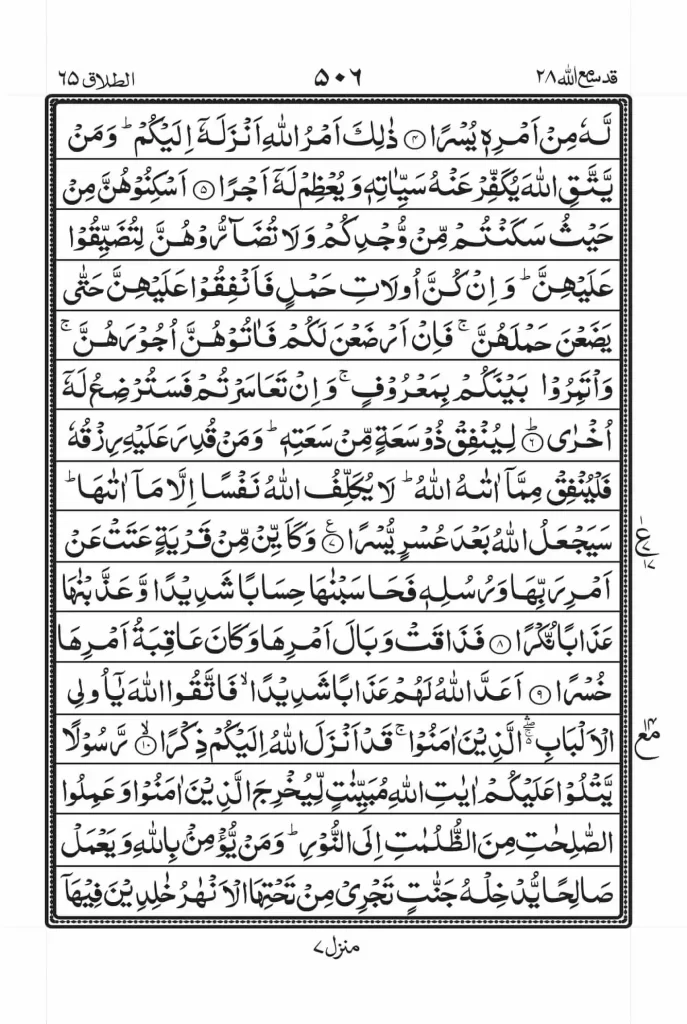 قد سمع الله ٢٨
۵۰۶
الطلاق ٦۵
لَّهٗ مِنْ اَمْرِهٖ یُسْرًا ﴿۴﴾ ذٰلِكَ اَمْرُ اللّٰهِ اَنْزَلَهٗۤ اِلَیْكُمْ ؕ وَمَنْ
یَّتَّقِ اللّٰهَ یُكَفِّرْ عَنْهُ سَیِّاٰتِهٖ وَیُعْظِمْ لَهٗۤ اَجْرًا ﴿۵﴾ اَسْكِنُوْهُنَّ مِنْ
حَیْثُ سَكَنْتُمْ مِّنْ وُّجْدِكُمْ وَلَا تُضَآرُّوْهُنَّ لِتُضَیِّقُوْا
عَلَیْهِنَّ ؕ وَاِنْ كُنَّ اُولَاتِ حَمْلٍ فَاَنْفِقُوْا عَلَیْهِنَّ حَتّٰی
یَضَعْنَ حَمْلَهُنَّ ۚ فَاِنْ اَرْضَعْنَ لَكُمْ فَاٰتُوْهُنَّ اُجُوْرَهُنَّ ۚ
وَاْتَمِرُوْا بَیْنَكُمْ بِمَعْرُوْفٍ ۚ وَاِنْ تَعَاسَرْتُمْ فَسَتُرْضِعُ لَهٗۤ
اُخْرٰی ﴿۶﴾ؕ لِیُنْفِقْ ذُوْ سَعَةٍ مِّنْ سَعَتِهٖ ؕ وَمَنْ قُدِرَ عَلَیْهِ رِزْقُهٗ
فَلْیُنْفِقْ مِمَّاۤ اٰتٰىهُ اللّٰهُ ؕ لَا یُكَلِّفُ اللّٰهُ نَفْسًا اِلَّا مَاۤ اٰتٰىهَا ؕ
سَیَجْعَلُ اللّٰهُ بَعْدَ عُسْرٍ یُّسْرًا ﴿۷﴾ وَكَاَیِّنْ مِّنْ قَرْیَةٍ عَتَتْ عَنْ
اَمْرِ رَبِّهَا وَرُسُلِهٖ فَحَاسَبْنٰهَا حِسَابًا شَدِیْدًا وَّعَذَّبْنٰهَا
عَذَابًا نُّكْرًا ﴿۸﴾ فَذَاقَتْ وَبَالَ اَمْرِهَا وَكَانَ عَاقِبَةُ اَمْرِهَا
خُسْرًا ﴿۹﴾ اَعَدَّ اللّٰهُ لَهُمْ عَذَابًا شَدِیْدًا ۙ فَاتَّقُوا اللّٰهَ یٰۤاُولِی
الْاَلْبَابِ ۛۚ الَّذِیْنَ اٰمَنُوْا ۛ۫ قَدْ اَنْزَلَ اللّٰهُ اِلَیْكُمْ ذِكْرًا ﴿۱۰﴾ۙ رَّسُوْلًا
یَّتْلُوْا عَلَیْكُمْ اٰیٰتِ اللّٰهِ مُبَیِّنٰتٍ لِّیُخْرِجَ الَّذِیْنَ اٰمَنُوْا وَعَمِلُوا
الصّٰلِحٰتِ مِنَ الظُّلُمٰتِ اِلَی النُّوْرِ ؕ وَمَنْ یُّؤْمِنْۢ بِاللّٰهِ وَیَعْمَلْ
صَالِحًا یُّدْخِلْهُ جَنّٰتٍ تَجْرِیْ مِنْ تَحْتِهَا الْاَنْهٰرُ خٰلِدِیْنَ فِیْهَاۤ
منزل ۷